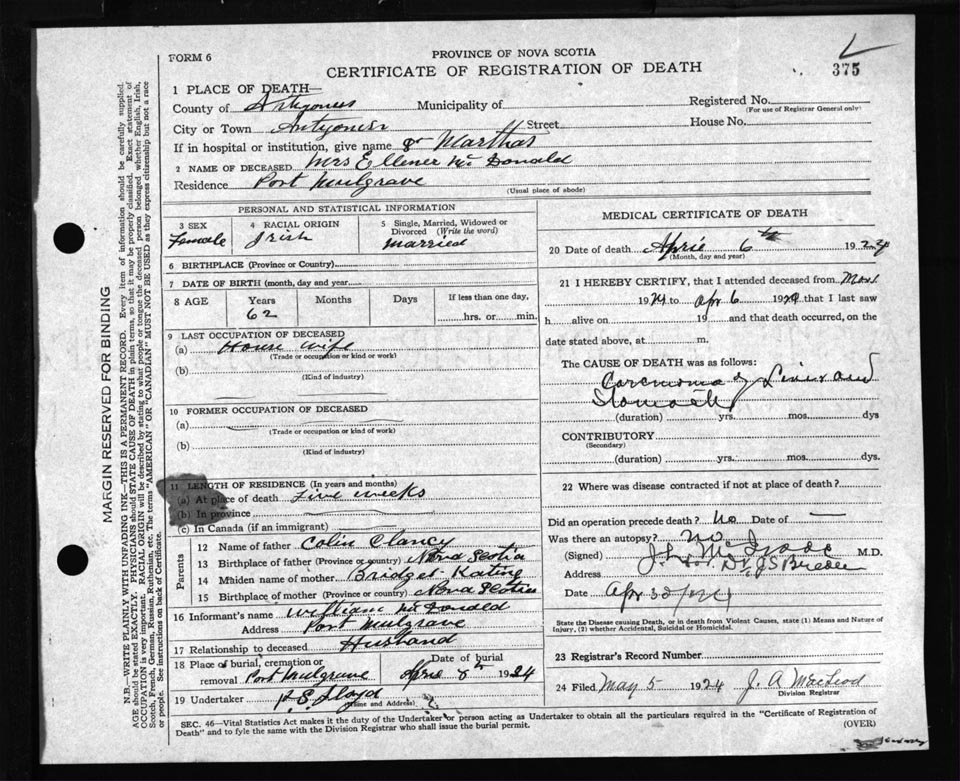 PROVINCE OF NOVA SCOTIA
FORM 6
CERTIFICATE OF REGISTRATION OF DEATH
375
1 PLACE OF DEATH—
County of Municipality of Registered No.
(For use of Registrar General only)
City or Town Street House No.
If in hospital or institution, give name Marthas
2 NAME OF DECEASED Mrs Ellener Mc Donald
Residence Port Mulgrave
(Usual place of abode)
PERSONAL AND STATISTICAL INFORMATION
3 SEX 4 RACIAL ORIGIN 5 Single, Married, Widowed or Divorced (Write the word)
Female Irish married
6 BIRTHPLACE (Province or Country)
7 DATE OF BIRTH (month, day and year)
8 AGE Years Months Days If less than one day,
62 hrs. or min.
9 LAST OCCUPATION OF DECEASED
(a) House wife
(Trade or occupation or kind or work)
(b)
(Kind of industry)
10 FORMER OCCUPATION OF DECEASED
(a)
(Trade or occupation or kind of work)
(b)
(Kind of industry)
11 LENGTH OF RESIDENCE (In years and months)
(a) At place of death five weeks
(b) In province
(c) In Canada (if an immigrant)
Parents
12 Name of father Colin Clancy
13 Birthplace of father (Province or country) Nova Scotia
14 Maiden name of mother Bridget Kating
15 Birthplace of mother (Province or country) Nova Scotia
16 Informant's name William Mc Donald
Address Port Mulgrave
17 Relationship to deceased Husband
18 Place of burial, cremation or removal Port Mulgrave
Date of burial April 8th 1924
19 Undertaker P. S. Lloyd
(Name and Address)
MEDICAL CERTIFICATE OF DEATH
20 Date of death April 6th 1924
(Month, day and year)
21 I HEREBY CERTIFY, that I attended deceased from
1924 to Apr 6 1924 that I last saw
h alive on 19 and that death occurred, on the
date stated above, at m.
The CAUSE OF DEATH was as follows:
Carcinoma of Liver and
Stomach
(duration) yrs. mos. dys
CONTRIBUTORY
(Secondary)
(duration) yrs. mos. dys.
22 Where was disease contracted if not at place of death?
Did an operation precede death? No Date of —
Was there an autopsy? No
(Signed) M.D.
Address
Date Apr 30/1924
State the Disease causing Death, or in death from Violent Causes, state (1) Means and Nature of
Injury, (2) whether Accidental, Suicidal or Homicidal.
23 Registrar's Record Number
24 Filed May 5 1924 J. A. MacLeod
Division Registrar
SEC. 46—Vital Statistics Act makes it the duty of the Undertaker or person acting as Undertaker to obtain all the particulars required in the "Certificate of Registration of
Death" and to fyle the same with the Division Registrar who shall issue the burial permit.
(OVER)
MARGIN RESERVED FOR BINDING
N.B.—WRITE PLAINLY WITH UNFADING INK—THIS IS A PERMANENT RECORD. Every item of information should be carefully supplied.
AGE should be stated EXACTLY. PHYSICIANS should STATE CAUSE OF DEATH in plain terms, so that it may be properly classified. Exact statement of
OCCUPATION is very important. RACIAL ORIGIN will be described by stating to what people or tongue the deceased person belonged whether English, Irish,
Scotch, French, German, Russian, Ruthenian, etc. The terms "AMERICAN" OR "CANADIAN" MUST NOT BE USED as they express citizenship but not a race
or people. See instructions on back of Certificate.